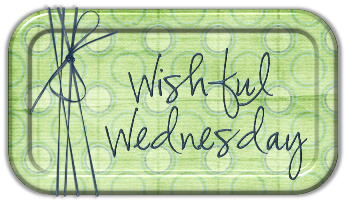 Wishful
Wednesday